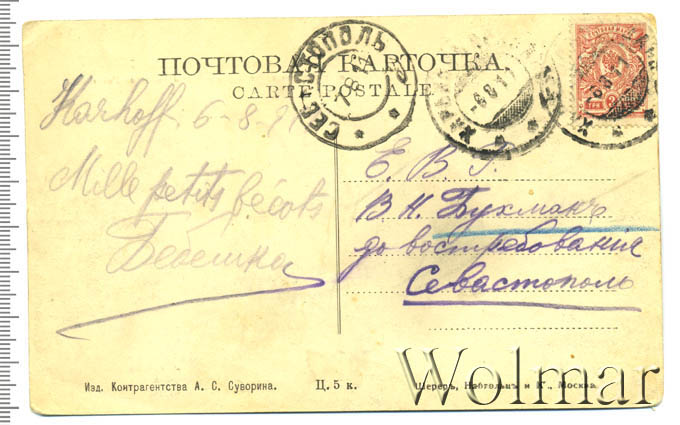 ПОЧТОВАЯ КАРТОЧКА.
CARTE POSTALE.
СЕВАСТОПОЛЬ
7 8 11
-6.8.11
ТРИ 3
Karhoff 6-8-11
Mille petits bécots
Бебешка
Е. В. Б.
В. Н. Бухманъ
до востребованія
Севастополь
Изд. Контрагентства А. С. Суворина.
Ц. 5 к.
Шереръ, Набгольцъ и К°, Москва.
Wolmar